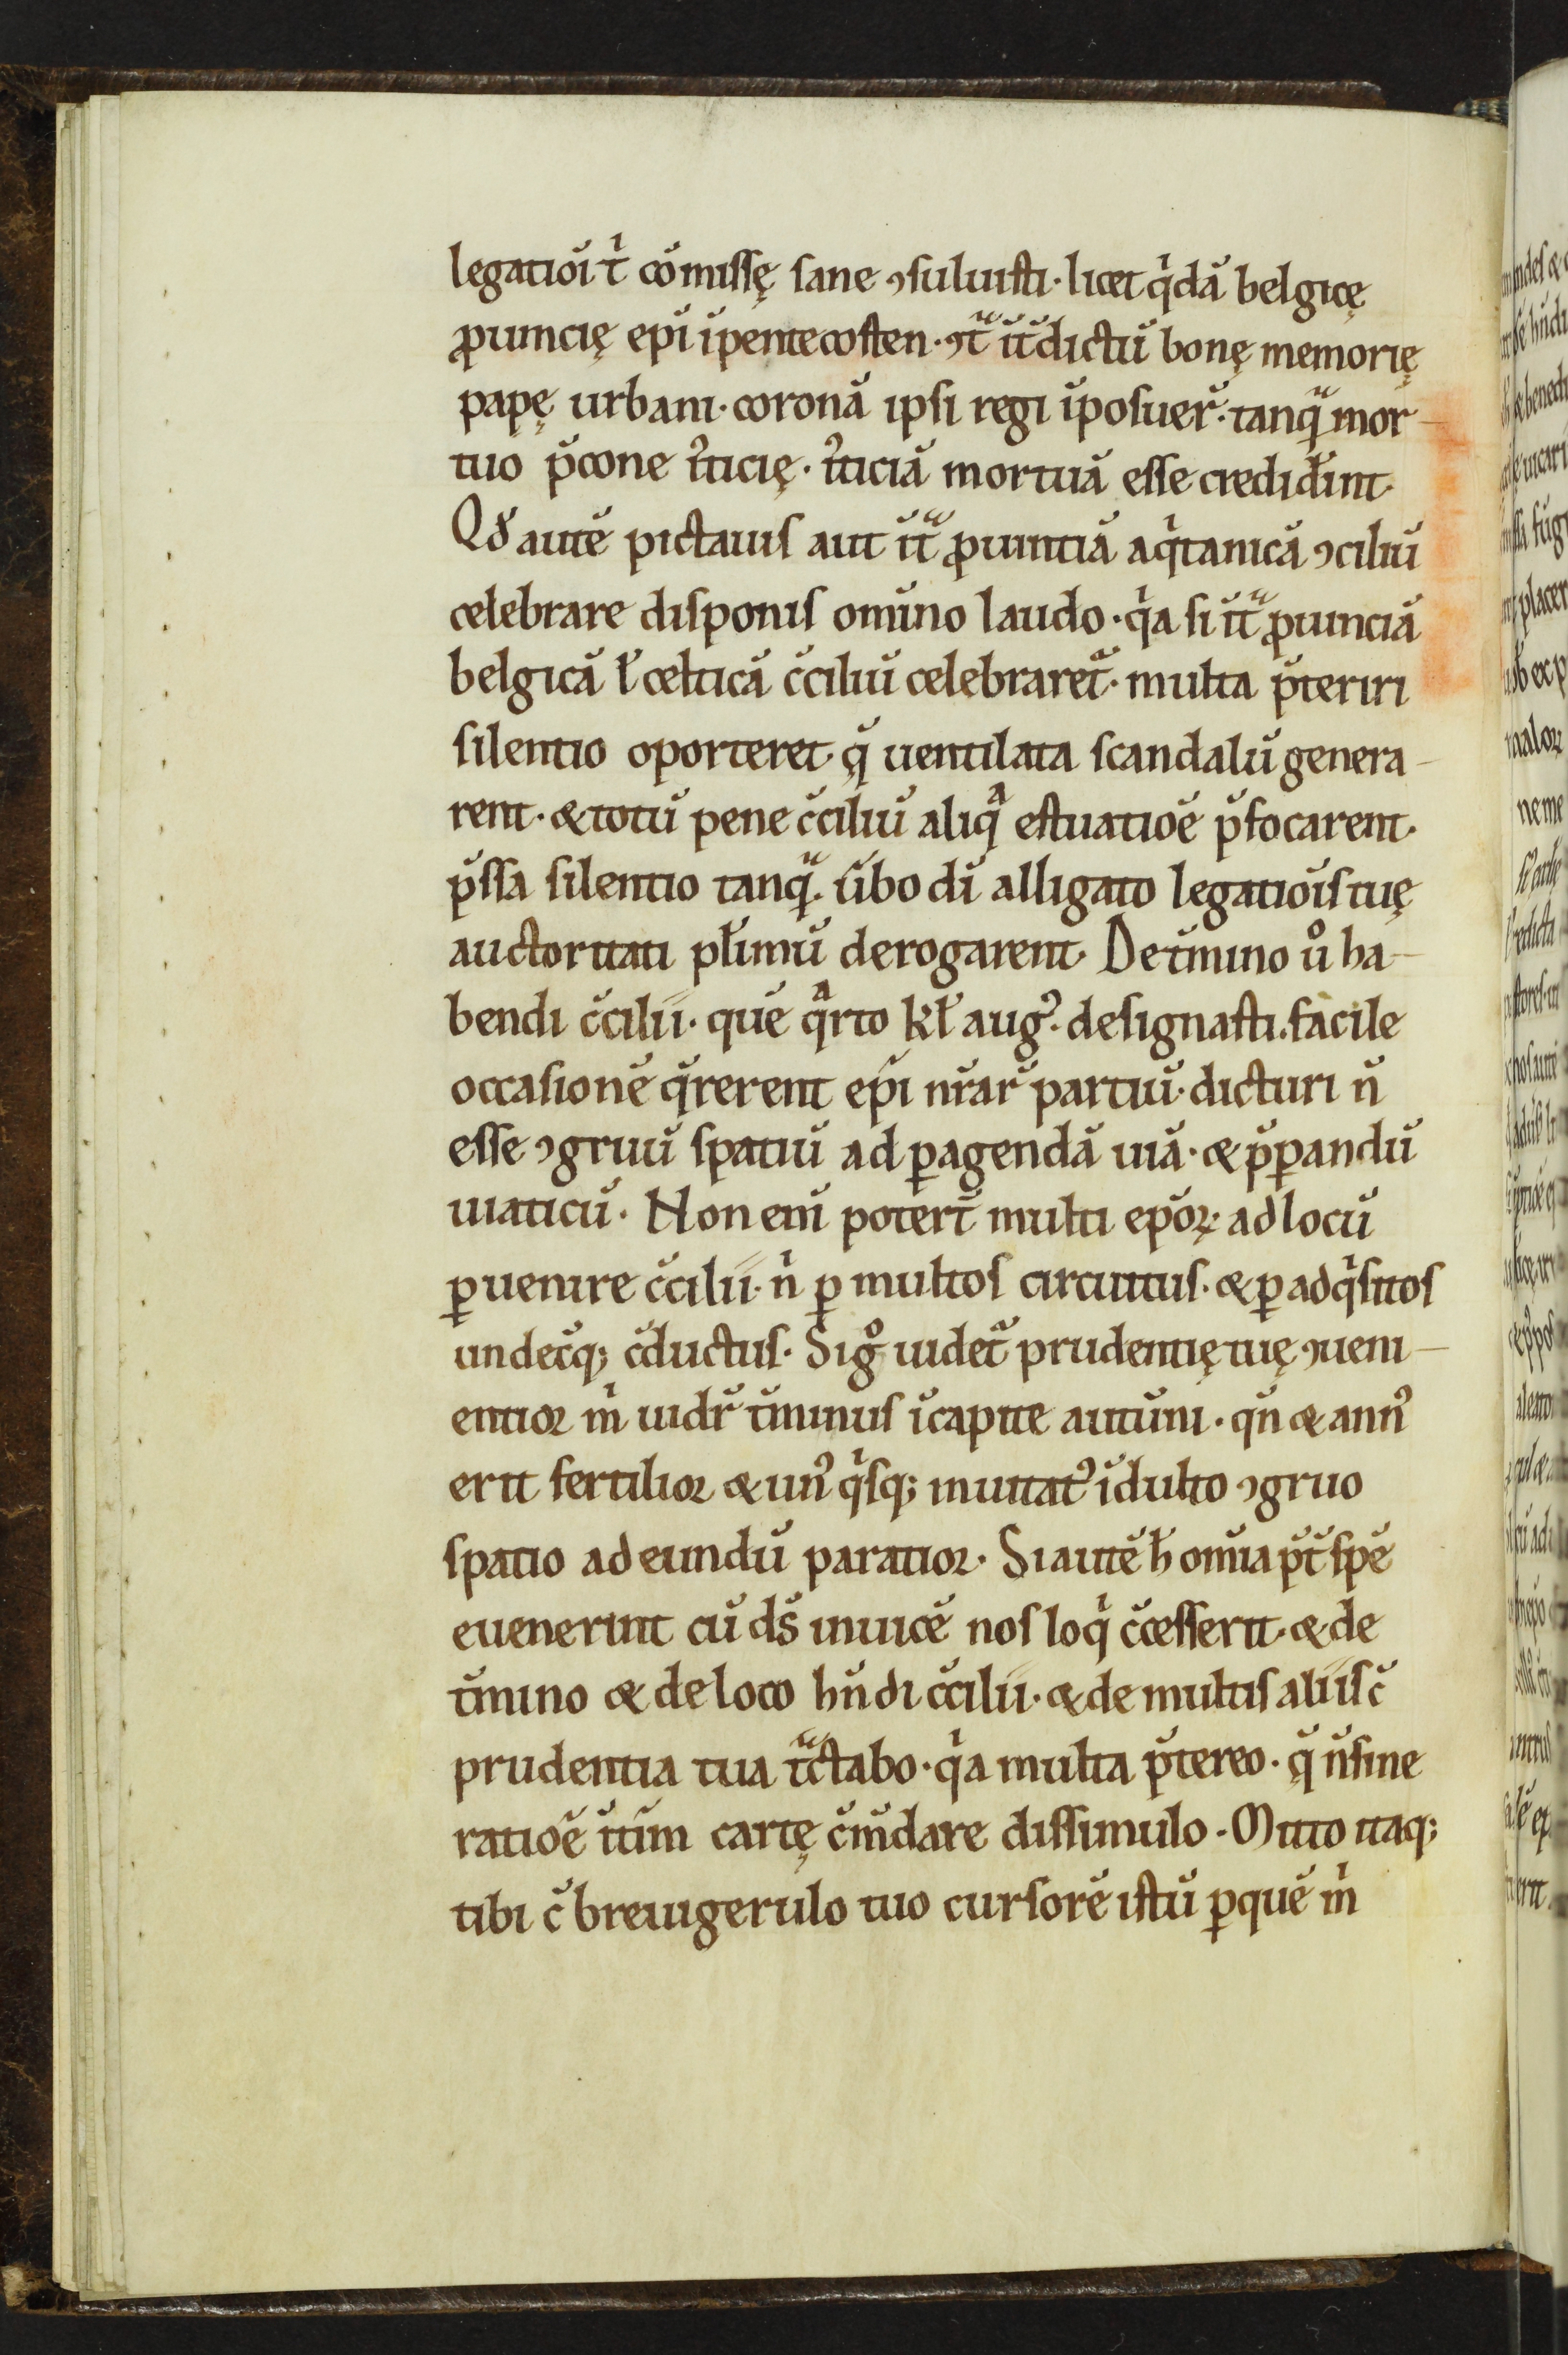 legatiōi t̍ cōmissę sane ꝯsuluisti· licet q̍dā belgicę
ꝓuincię ep̄i īpentecosten· ꝯt̄ͣ īt̄dictū bonę memorię
papę urbani· coronā ipsi regi īposuer̄· tanqͣ̄ mor-
tuo p̄cone ı̉ticię· ı̉ticiā mortuā esse crediđint·
Qđ autē pictauis aut īt̄ͣ ꝓuintiā aq̍tanicā ꝯciliū
celebrare disponis om̄ino laudo· q̍a si īt̄ͣ ꝓuinciā
belgicā ł celticā c̄ciliū celebraret᷑· multa p̄teriri
silentio oporteret· q̄ uentilata scandalū genera-
rent· & totū pene c̄ciliū aliqͣ estuatiōe p̄focarent·
p̄ssa silentio tanqͣ̄· ūbo dī alligato legatiōis tuę
auctoritati pł̄imū derogarent· De t̄mino uͦ ha-
bendi c̄cilii· quē qͣrto kł augꝰ· designasti· facile
occasionē q̄rerent ep̄i nr̄ar̄ partiū· dicturi n̄
esse ꝯgruū spatiū ad ꝑagendā uiā· & p̄ꝑandū
uiaticū· Non eni͂ potert̄ multi ep̄oꝝ ad locū
ꝑuenire c̄cilii· n̍ ꝑ multos circuitus· & ꝑ adq̍sitos
undecūq; c̄ductus· Si gͦ uidet᷑ prudentię tuę ꝯueni-
entior m̍ uidr̄ t̄minus īcapite autūni· qn̄ & annꝰ
erit fertilior & unꝰ q̍sq; inuitatꝰ īdulto ꝯgruo
spatio ad eundū paratior· Si autē h̄ om̄ia p̄t̄ spē
euenerint cū ds̄ inuicē nos loq̍ c̄cesserit· & de
t̄mino & de loco hn̄di c̄cilii· & de multis aliis c̄
prudentia tua t̄ͣctabo· q̍a multa p̄tereo· q̄ n̄ sine
ratiōe īt̄im cartę c̄m̄dare dissimulo· Mitto itaq;
tibi c̄ breuigerulo tuo cursorē istū ꝑ quē m̍